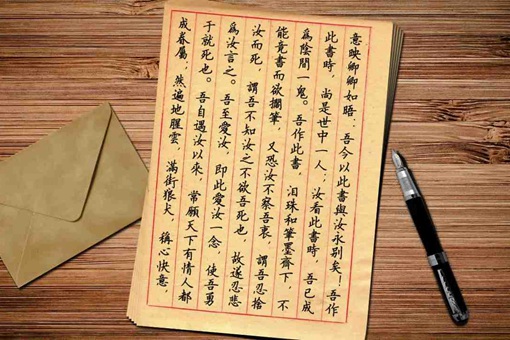 意映卿卿如晤:吾今以此書與汝永别矣!吾作
此書時,尚是世中一人;汝看此書時,吾已成
爲陰間一鬼。吾作此書,泪珠和筆墨齊下,不
能竟書而欲擱筆,又恐汝不察吾衷,謂吾忍捨
汝而死,謂吾不知汝之不欲吾死也,故遂忍悲
爲汝言之。吾至愛汝,即此愛汝一念,使吾勇
于就死也。吾自遇汝以來,常願天下有情人都
成眷屬;然遍地腥雲,滿街狼犬,稱心快意,